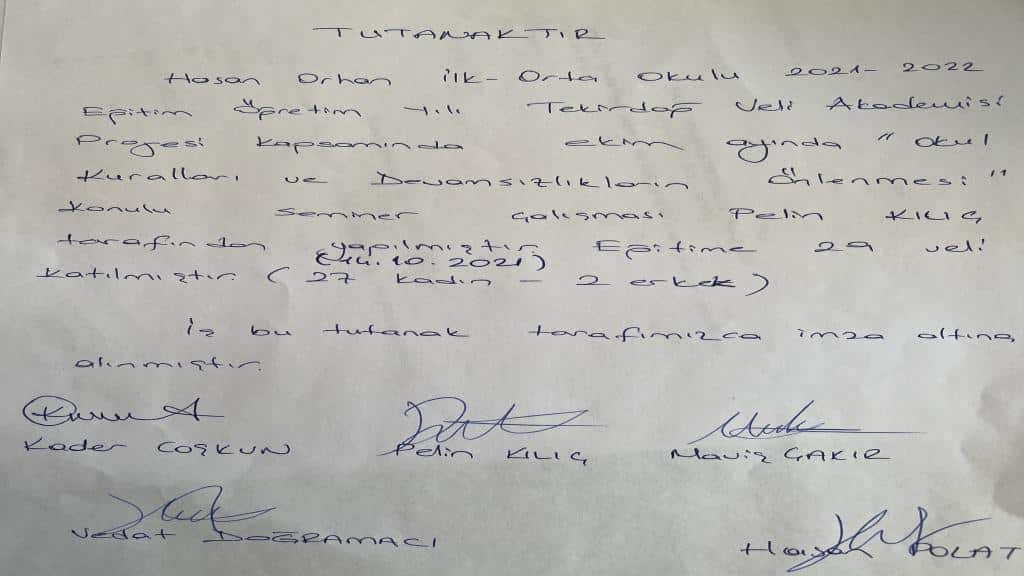 TUTANAKTIR
Hasan Orhan ilk-Orta Okulu 2021-2022
Eğitim Öğretim Yılı Tekirdağ Veli Akademisi
Projesi kapsamında ekim ayında "Okul
Kuralları ve Devamsızlıkların Önlenmesi"
konulu seminer çalışması Pelin KILIÇ
tarafından yapılmıştır. Eğitime 29 veli
(14.10.2021)
katılmıştır. (27 kadın - 2 erkek)
İş bu tutanak tarafımızca imza altına
alınmıştır.
Kader COŞKUN Pelin KILIÇ Maviş ÇAKIR
Vedat DOĞRAMACI
POLAT